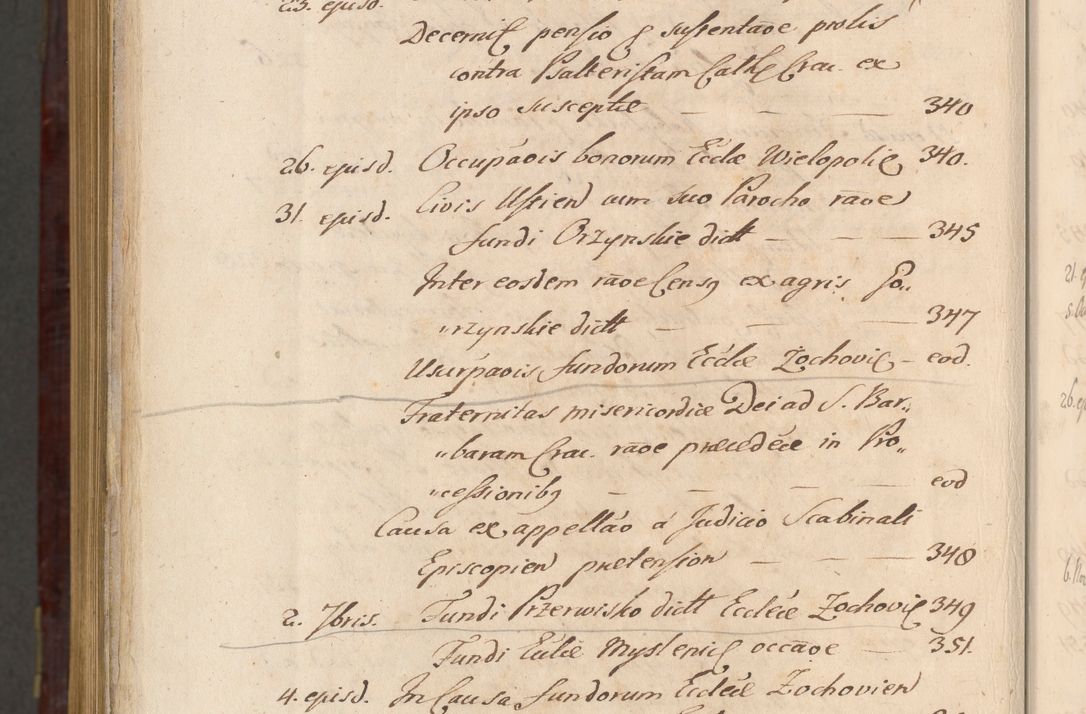 23. ejusd.
Decernit pensio ꝑ sustentaõe prolis
contra Psalteristam Cathł Crac. ex
ipso susceptæ — — — 340
26. ejusd. Occupaõis bonorum Ecclæ Wielopolič 340.
31. ejusd. Civis Ustien cum suo Parocho raõe
fundi Orzynskie dict — — — 345
Inter eosdem raõe Censꝰ ex agris Po„
„rzynskie dict — — — 347
Usurpaõis fundorum Ecclæ Zochovič — eod.
Fraternitas misericordiæ Dei ad S. Bar„
„baram Crac. raõe præcedćæ in Pro„
„cessionibꝰ — — — — eod
Causa ex appellaõ á Judicio Scabinali
Episcopien prætension — — 348
2. 7bris. Fundi Przerwisko dict Ecclæ Zochovič 349
Fundi Ecclæ Myslenič occaõe — 351.
4. ejusd. In Causa fundorum Ecclæ Zochovien